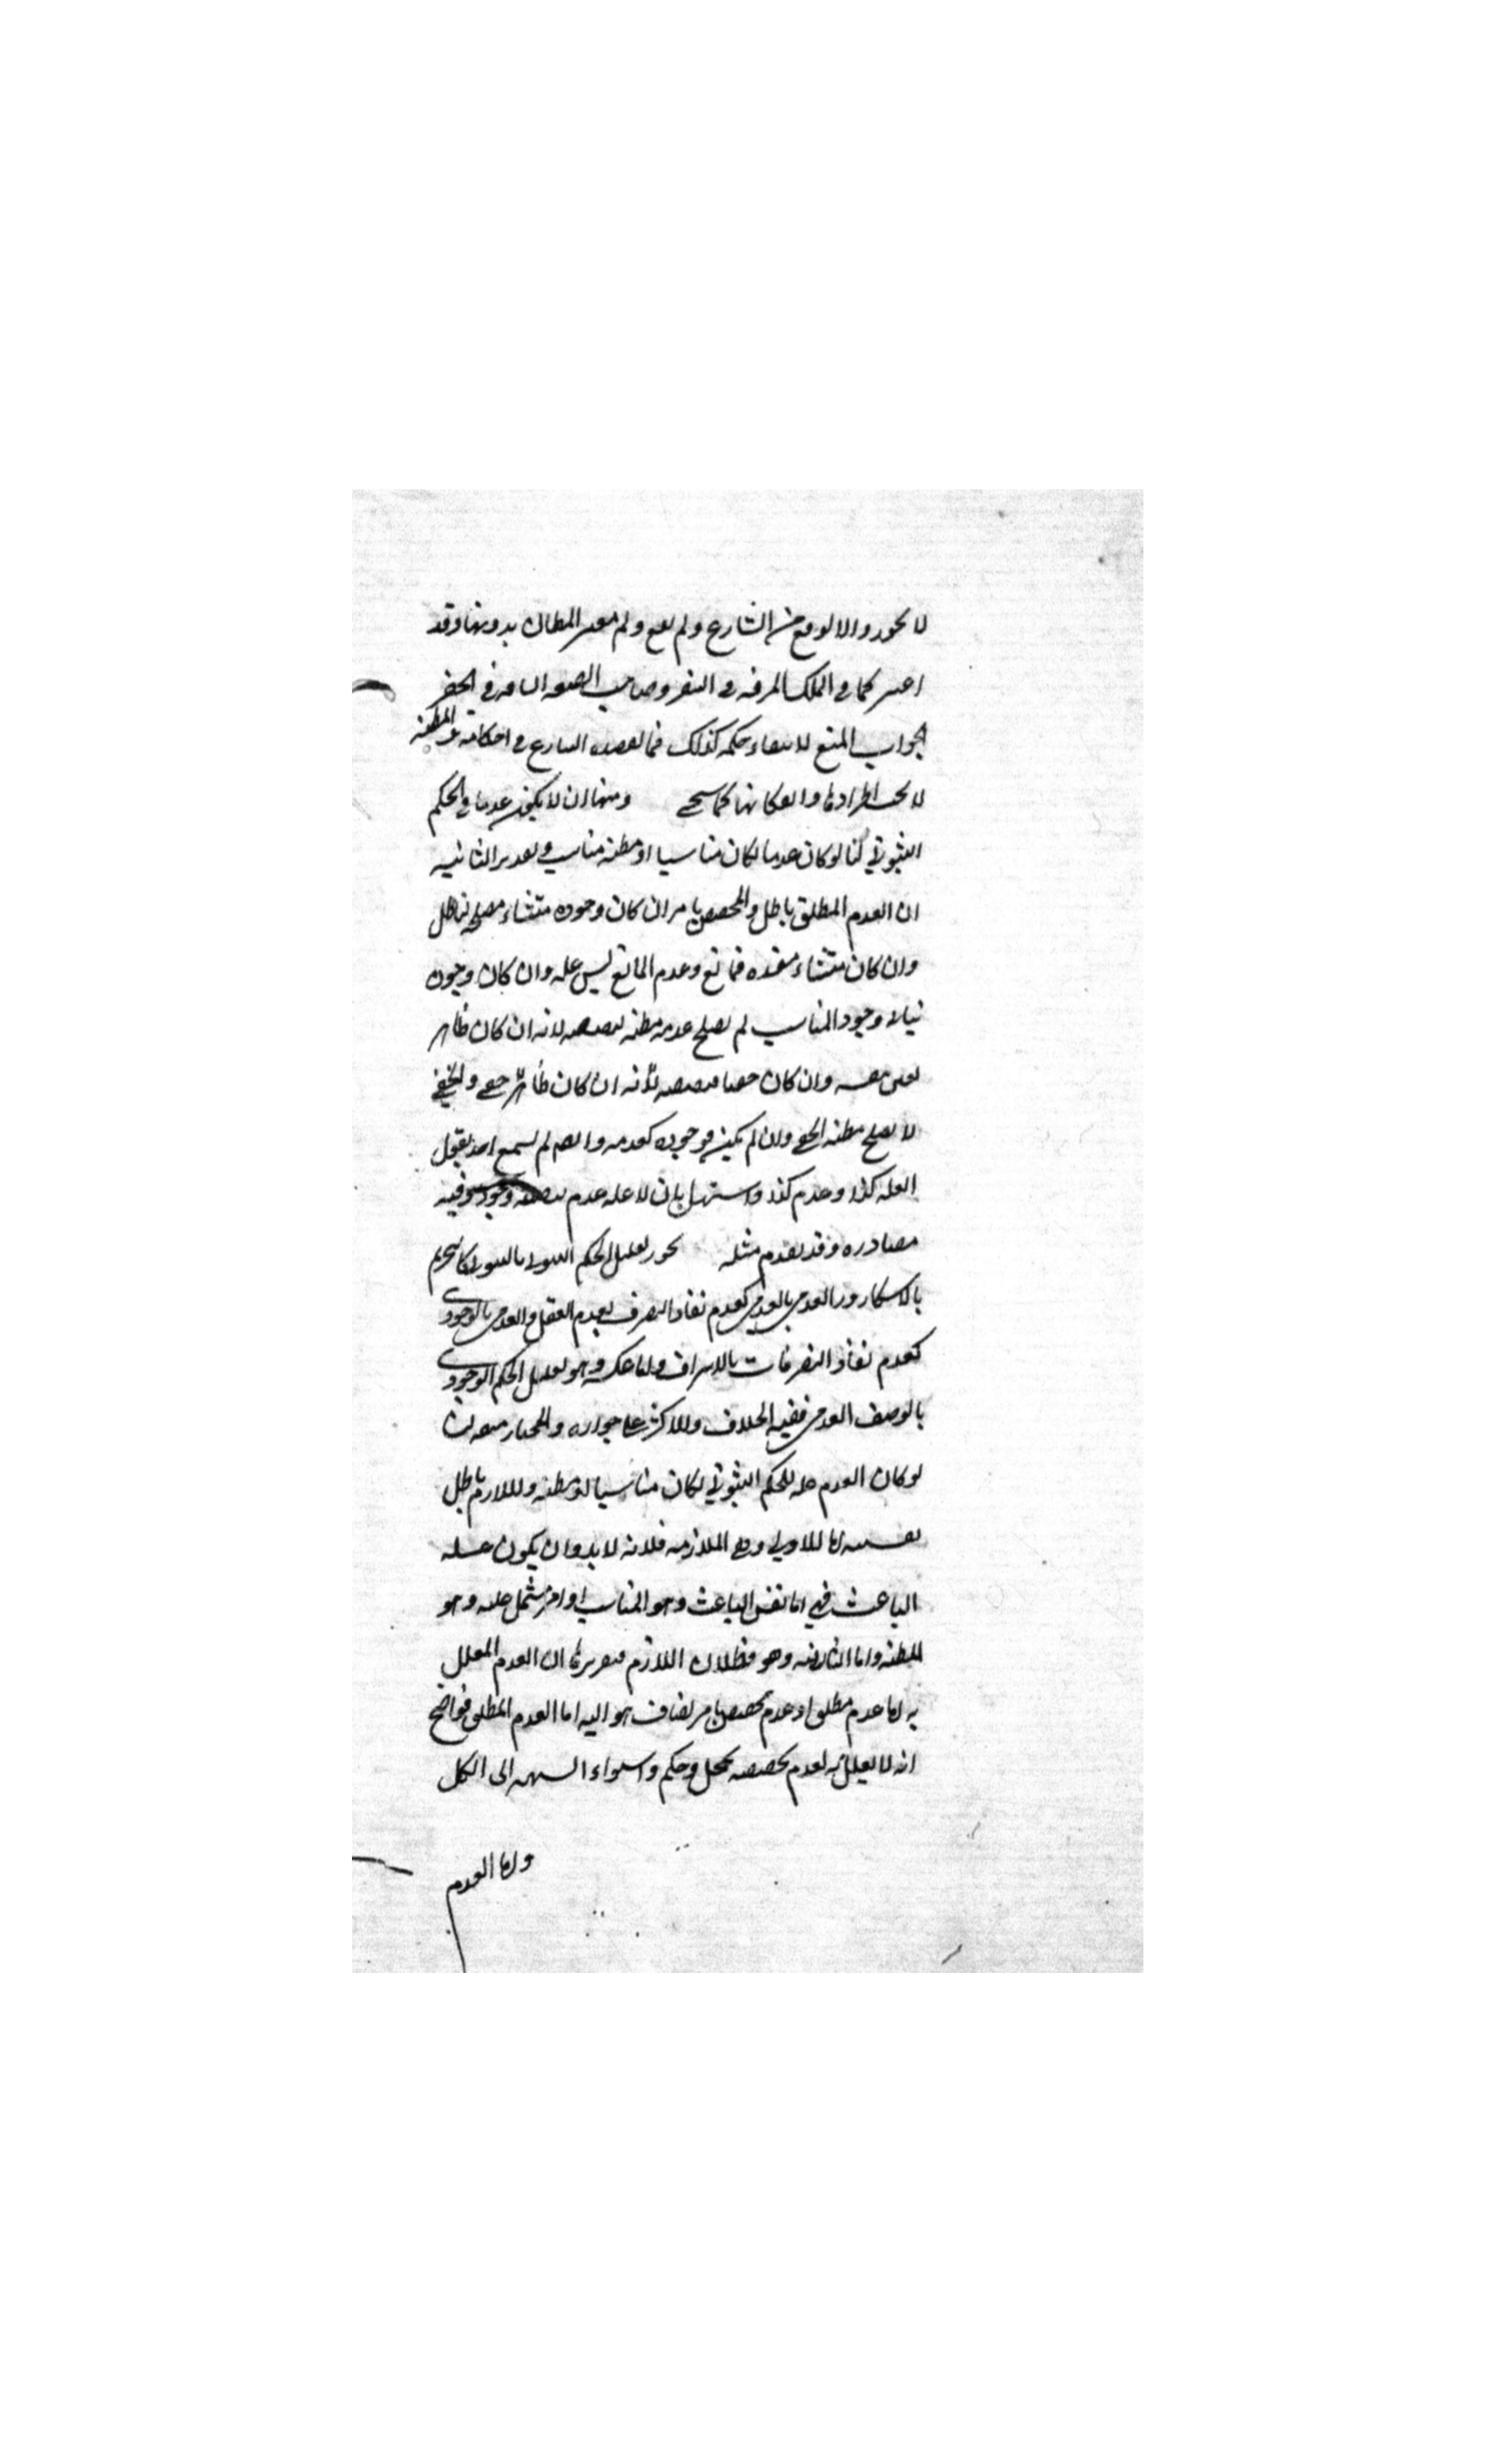 لا يجوز والا لوقع من الشارع ولم يقع ولم يعتبر المظان بدونها وقد
اعتبر كما في الملك المرفه في السفر وصاحب الصنعه الشاقه في الحضر
الجواب المنع لانتفاء حكمه كذلك فما قصده الشارع في احكامه المظنه
لا يجب اطرادها وانعكاسها كما سيجي ومنها ان لا يكون عدما في الحكم
الثبوتي لنا لو كان عدما لكان مناسبا او مظنه مناسب وتقدير الثانيه
ان العدم المطلق باطل والمخصص بامر ان كان وجوده منشاء مصلحه فباطل
وان كان منشاء مفسده فمانع وعدم المانع ليس عله وان كان وجوده
ينافي وجود المناسب لم يصلح عدمه مظنه لنقيضه لانه ان كان ظاهر
تعين بنفسه وان كان خفيا فنقيضه لانه ان كان ظاهرا خفي والخفي
لا يصلح مظنه الخفي وان لم يكن فوجوده كعدمه وايضا لم يسمع احد يقول
العله كذا وعدم كذا واستدل بان لا عله عدم فنقيضه وجود وفيه
مصادره وقد تقدم مثله يجوز تعليل الحكم الثبوتي بالثبوتي كالتحريم
بالاسكار والعدمي بالعدمي كعدم نفاذ التصرف لعدم العقل والعدمي بالوجودي
كعدم نفاذ التصرفات بالاسراف واما عكسه وهو تعليل الحكم الوجودي
بالوصف العدمي ففيه الخلاف والاكثر على جوازه والمختار منعه لنا
لو كان العدم عله للحكم الثبوتي لكان مناسبا او مظنه واللازم باطل
بقسميه اما الاولى وهي الملازمه فلانه لا بد وان يكون عله
الباعث فهي اما نفس الباعث وهو المناسب او امر مشتمل عليه وهو
المظنه واما الثانيه وهو بطلان اللازم فتقريرها ان العدم المعلل
به اما عدم مطلق او عدم مخصص بامر يضاف هو اليه اما العدم المطلق فواضح
انه لا يعلل به لعدم تخصصه بمحل وحكم واستواء النسبه الى الكل
واما العدم